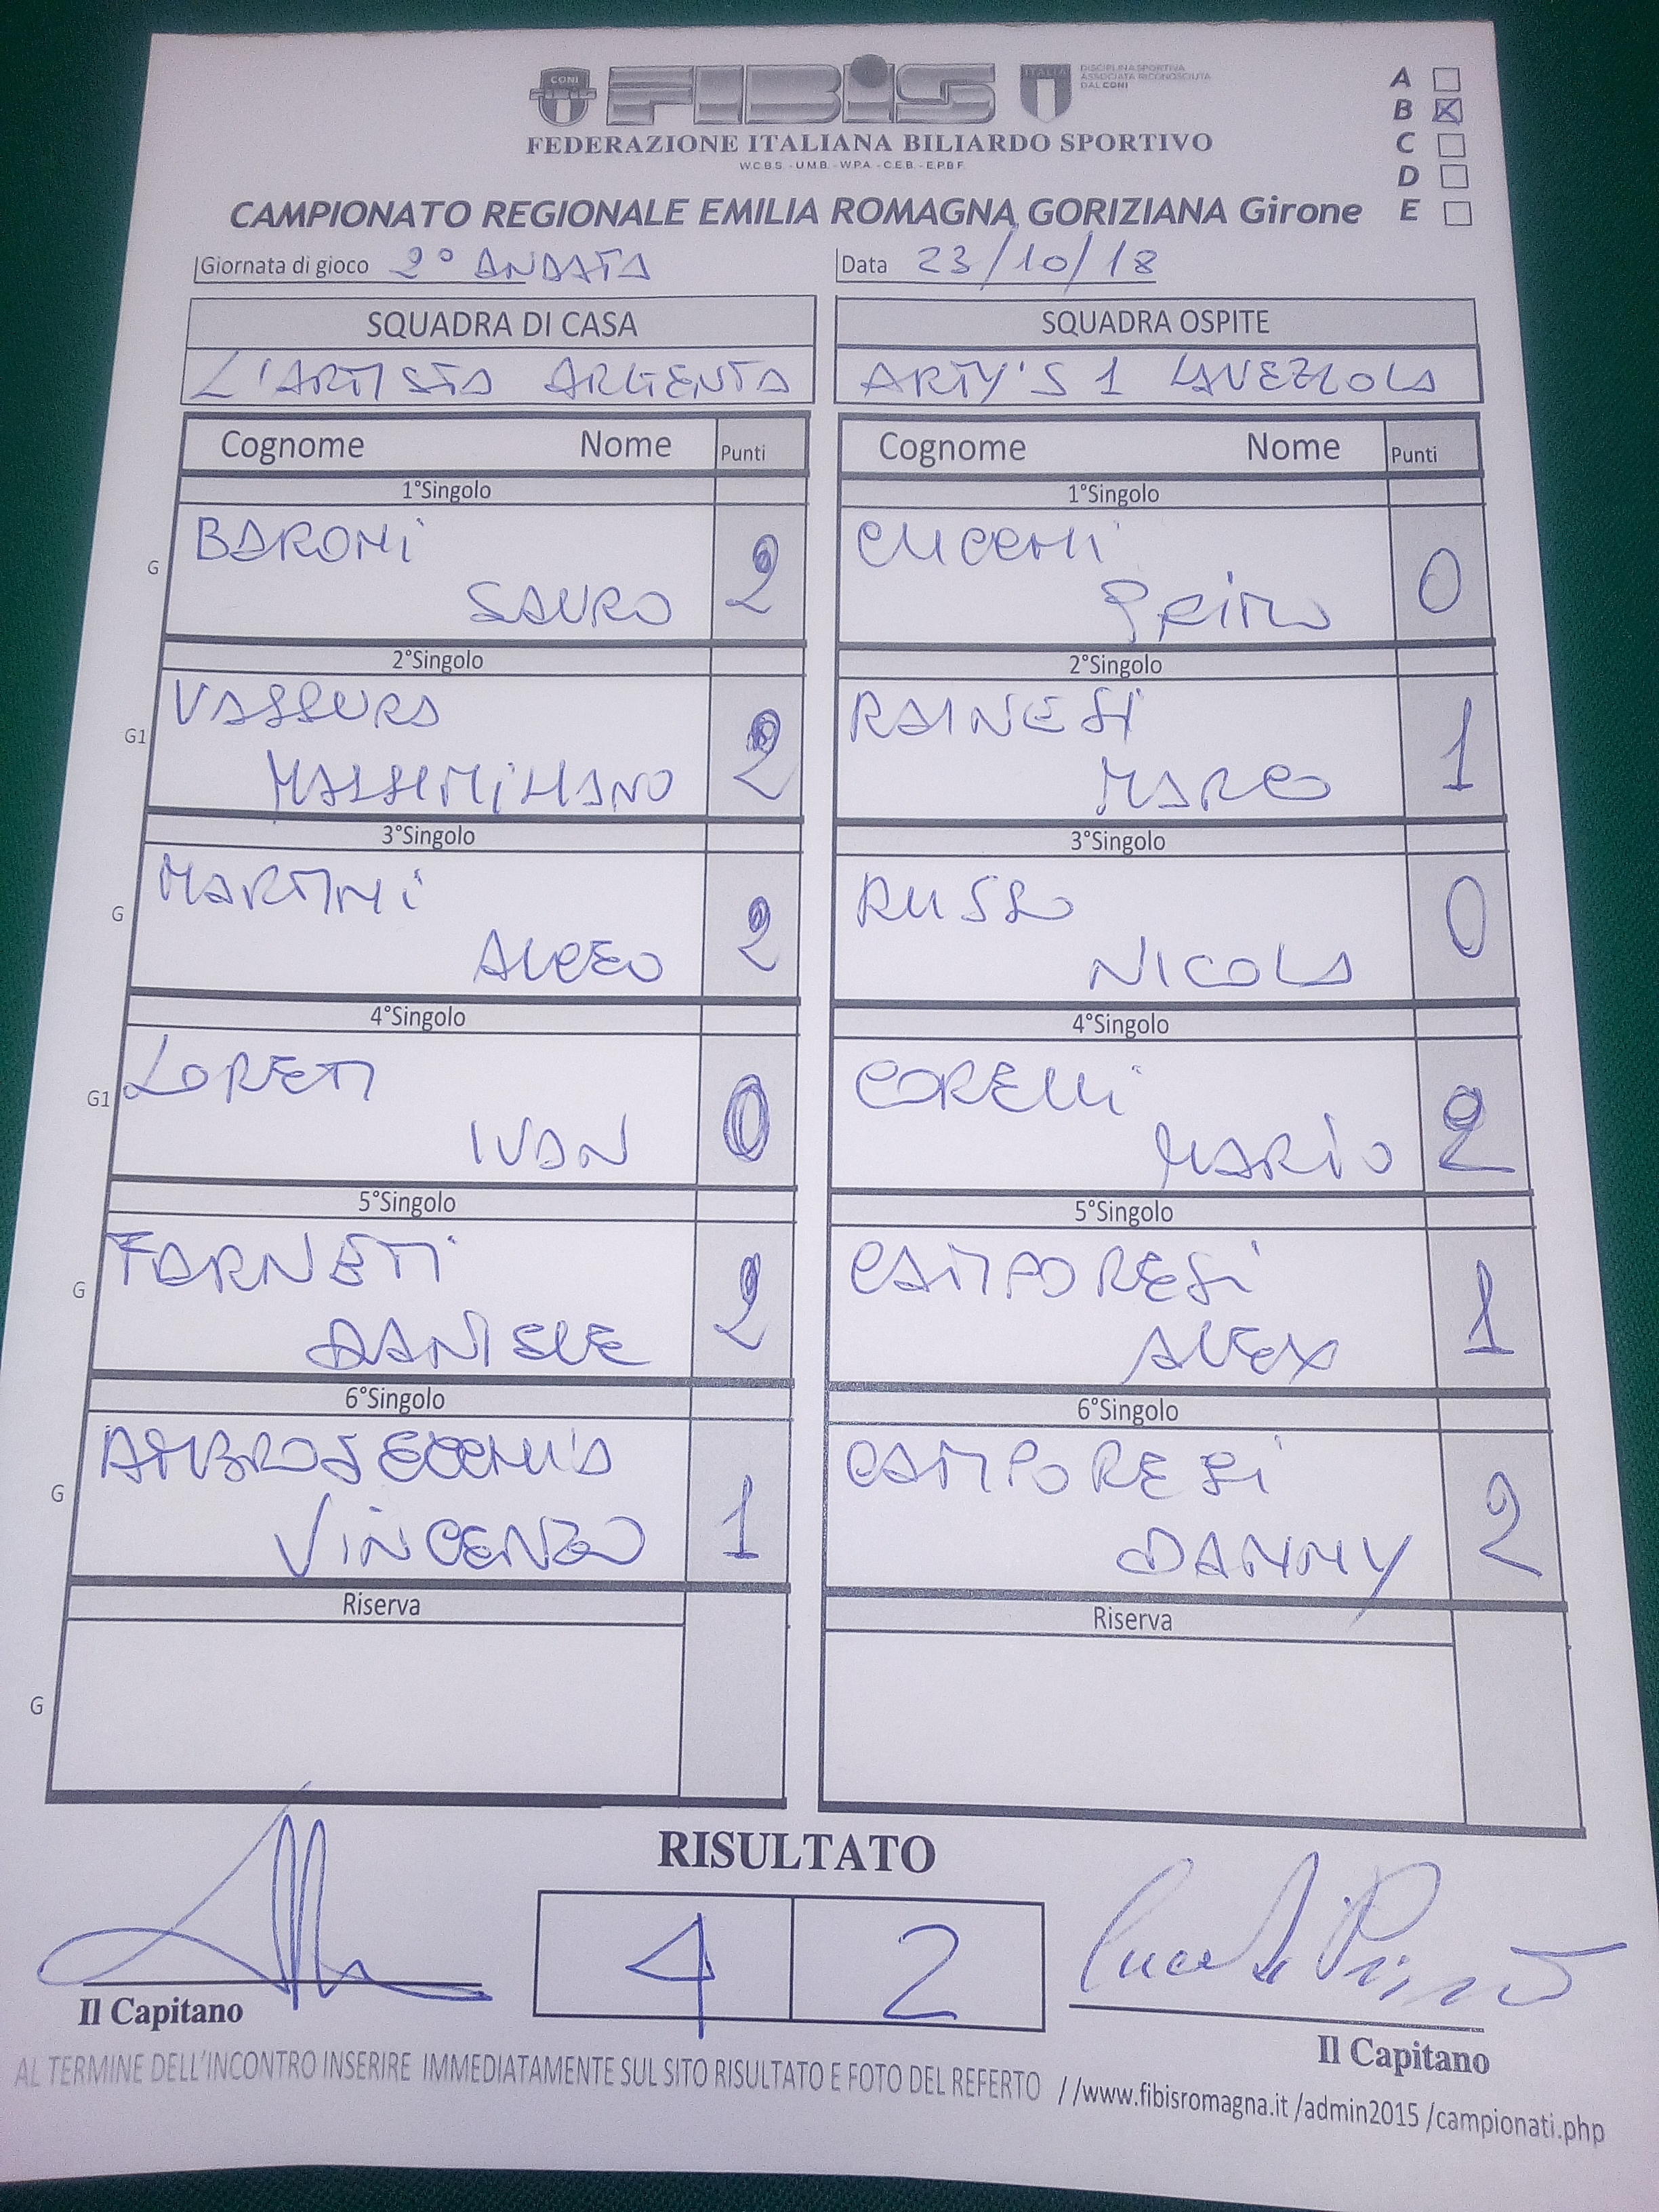 CONI
FIBIS
ITALIA
DISCIPLINA SPORTIVA
ASSOCIATA RICONOSCIUTA
DAL CONI
FEDERAZIONE ITALIANA BILIARDO SPORTIVO
W.C.B.S. - U.M.B. - W.P.A. - C.E.B. - E.P.B.F.
A
B X
C
D
CAMPIONATO REGIONALE EMILIA ROMAGNA GORIZIANA Girone E
Giornata di gioco 2° ANDATA Data 23/10/18
SQUADRA DI CASA SQUADRA OSPITE
L'ARTISTA ARGENTA ARTY'S 1 LAVEZZOLA
Cognome Nome Punti Cognome Nome Punti
1°Singolo 1°Singolo
BARONI CUCCHI
G SAURO 2 PRIMO 0
2°Singolo 2°Singolo
VASSURA RAINESI
G1 MASSIMILIANO 2 MARCO 1
3°Singolo 3°Singolo
MARTINI RUSSO
G ALCEO 2 NICOLA 0
4°Singolo 4°Singolo
LORETI CORELLI
G1 IVAN 0 MARIO 2
5°Singolo 5°Singolo
FARNETI CAMPORESI
G DANIELE 2 ALEX 1
6°Singolo 6°Singolo
CAMPORESI
G VINCENZO 1 DANNY 2
Riserva Riserva
G
RISULTATO
4 2
Il Capitano Il Capitano
AL TERMINE DELL'INCONTRO INSERIRE IMMEDIATAMENTE SUL SITO RISULTATO E FOTO DEL REFERTO //www.fibisromagna.it /admin2015 /campionati.php